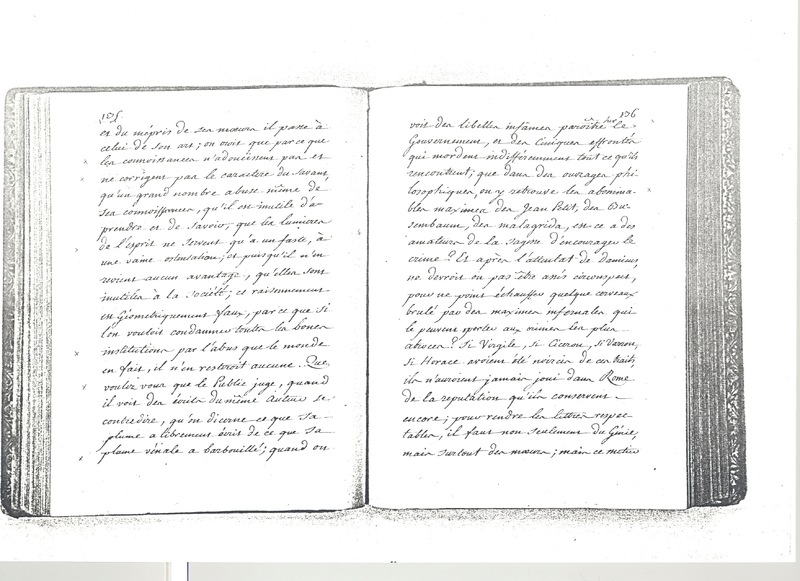 175
et du mépris de ses mœurs il passe à
celui de son art; on croit que parce que
les connoissances n'adoucissent pas et
ne corrigent pas le caractere du Savant,
qu'un grand nombre abuse même de
ses connoissances, qu'il est inutile d'a-
prendre et de Savoir, que les lumieres
de l'esprit ne servent qu'à un faste, à
une vaine ostentation; et puisqu'il n'en
revient aucun avantage, qu'elles sont
inutiles à la Société; ce raisonnement
est Géometriquement faux, parce que Si
l'on vouloit condamner toutes les bones
institutions par l'abus que le monde
en fait, il n'en resteroit aucune. Que
voulez vous que le Public juge, quand
il voit des écrits du même Auteur se
contredire, qu'on dicerne ce que Sa
plume a librement écrit de ce que Sa
plume vénale a barbouillé; quand on
176
voit des libelles infames paroitre sur le
Gouvernement, et des Ciniques effrontés
qui mordent indifféremment tout ce qu'ils
rencontrent; que dans des ouvrages phi-
losophiques, on y retrouve les abomina-
bles maximes des Jean Petit, des Bu-
sembaum, des malagrida, est-ce a des
amateurs de la sagesse d'encourager le
crime? Et après l'attentat de Damiens,
ne devroit on pas être assés circonspect,
pour ne point échauffer quelque cerveaux
brulé par des maximes infernales qui
le peuvent porter aux crimes les plus
atroces? Si Virgile, Si Ciceron, Si Varron,
Si Horace avoient été noircis de ces traits,
ils n'auroient jamais joui dans Rome
de la reputation qu'ils conservent
encore; pour rendre les lettres respec-
tables, il faut non seulement du Génie,
mais surtout des mœurs; mais ce métier